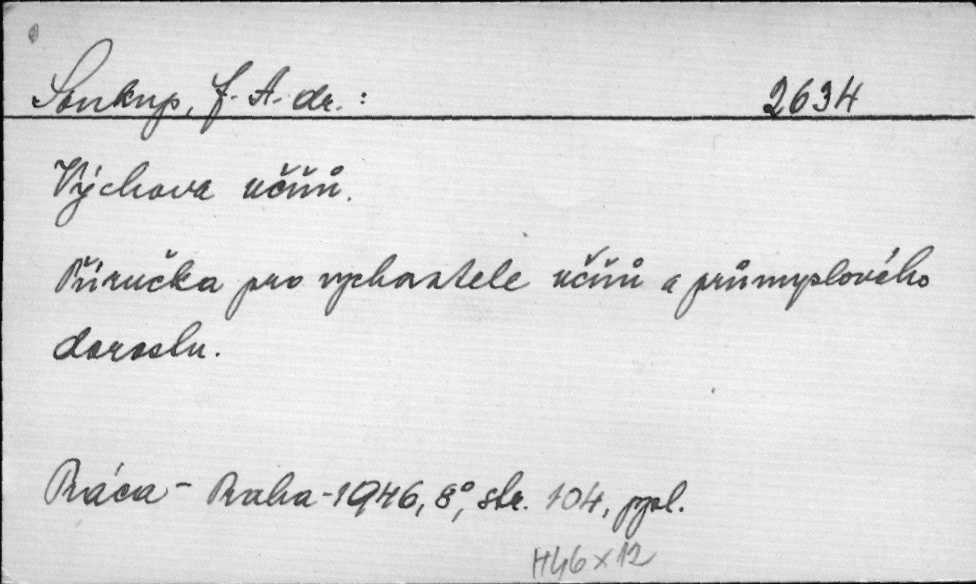 Soukup, f. A. dr. : 2634
Výchova učňů.
Příručka pro vychovatele učňů a průmyslového
dorostu.
Práca - Praha - 1946, 8°, str. 104, ppl.
H46 x 12